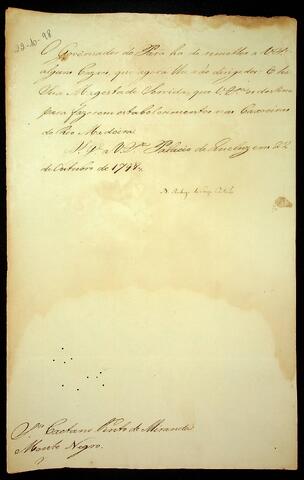 29-10-98
O Governador do Pará ha de remetter a V. S.
alguns Cazaes, que agora lhe vão dirigidos: E he
Sua Magestade Servida, que V. S.
para fazerem estabelecimentos nas Caxoeiras
do Rio Madeira.
D.s g.de a V. S.a Palacio de Queluz em 22
de Outubro de 1798.
D. Rodrigo de Souza Coutinho
S.r Caetano Pinto de Miranda
Monte Negro.